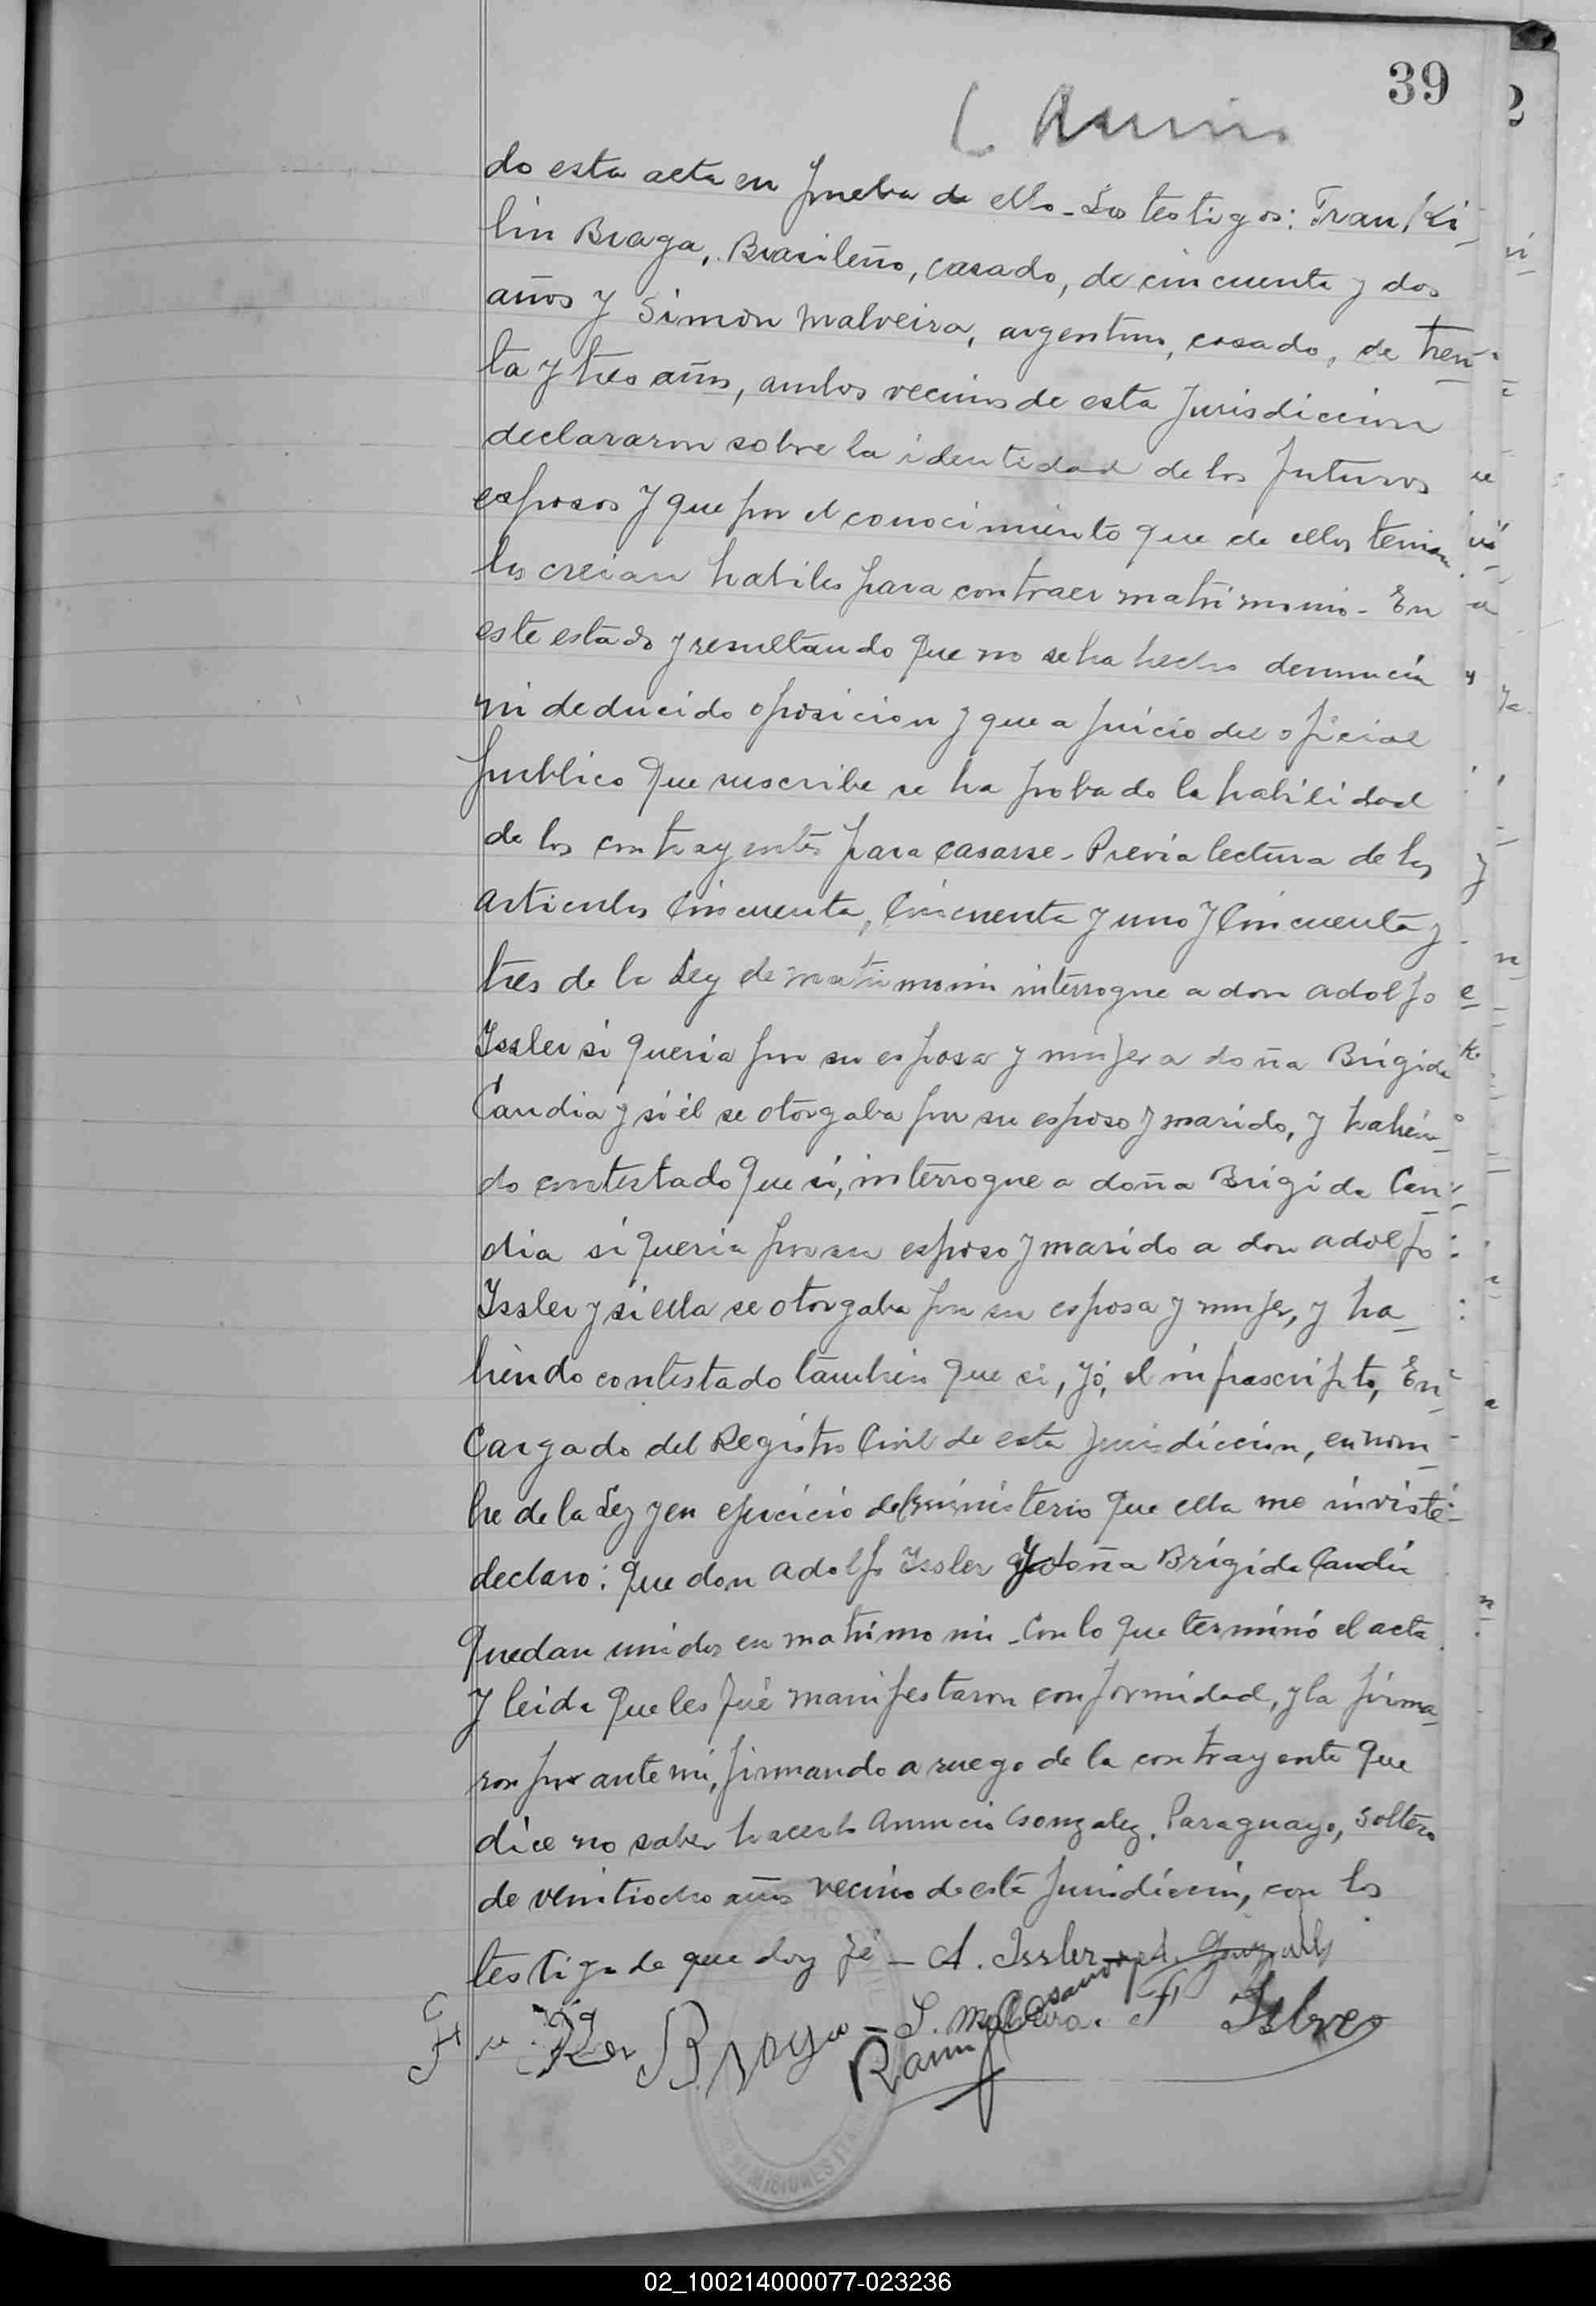 39
do esta acta en prueba de ello - Los testigos: Frankl
lin Braga, Brasileño, casado, de cincuenta y dos
años y Simon Malveira, argentino, casado, de trein-
ta y tres años, ambos vecinos de esta jurisdiccion
declararon sobre la identidad de los futuros
esposos y que por el conocimiento que de ellos tenian
los creian habiles para contraer matrimonio - En
este estado y resultando que no se ha hecho denuncia
ni deducido oposicion y que a juicio del oficial
publico que suscribe se ha probado la habilidad
de los contrayentes para casarse - Previa lectura de los
articulos Cincuenta, Cincuenta y uno y Cincuenta y
tres de la Ley de matrimonio interrogue a don Adolfo
Issler si queria por su esposa y mujer a doña Brigida
Candia y si él se otorgaba por su esposo y marido, y habien-
do contestado que si, interrogue a doña Brigida Can-
dia si queria por su esposo y marido a don Adolfo
Issler y si ella se otorgaba por su esposa y mujer, y ha-
biendo contestado tambien que si, yó, el infrascripto, En-
cargado del Registro Civil de esta jurisdiccion, en nom-
bre de la Ley y en ejercicio del ministerio que ella me inviste
declaro: que don Adolfo Issler y doña Brigida Candia
quedan unidos en matrimonio - Con lo que terminó el acta
y leida que les fué manifestaron conformidad, y la firma-
ron por ante mi, firmando a ruego de la contrayente que
dice no saber hacerlo Anuncio Gonzalez, Paraguayo, soltero
de veintiocho años vecino de esta jurisdiccion, con los
testigos de que doy fé - A. Issler - A. Gonzalez
Braga - S. Malveira.
02_100214000077-023236